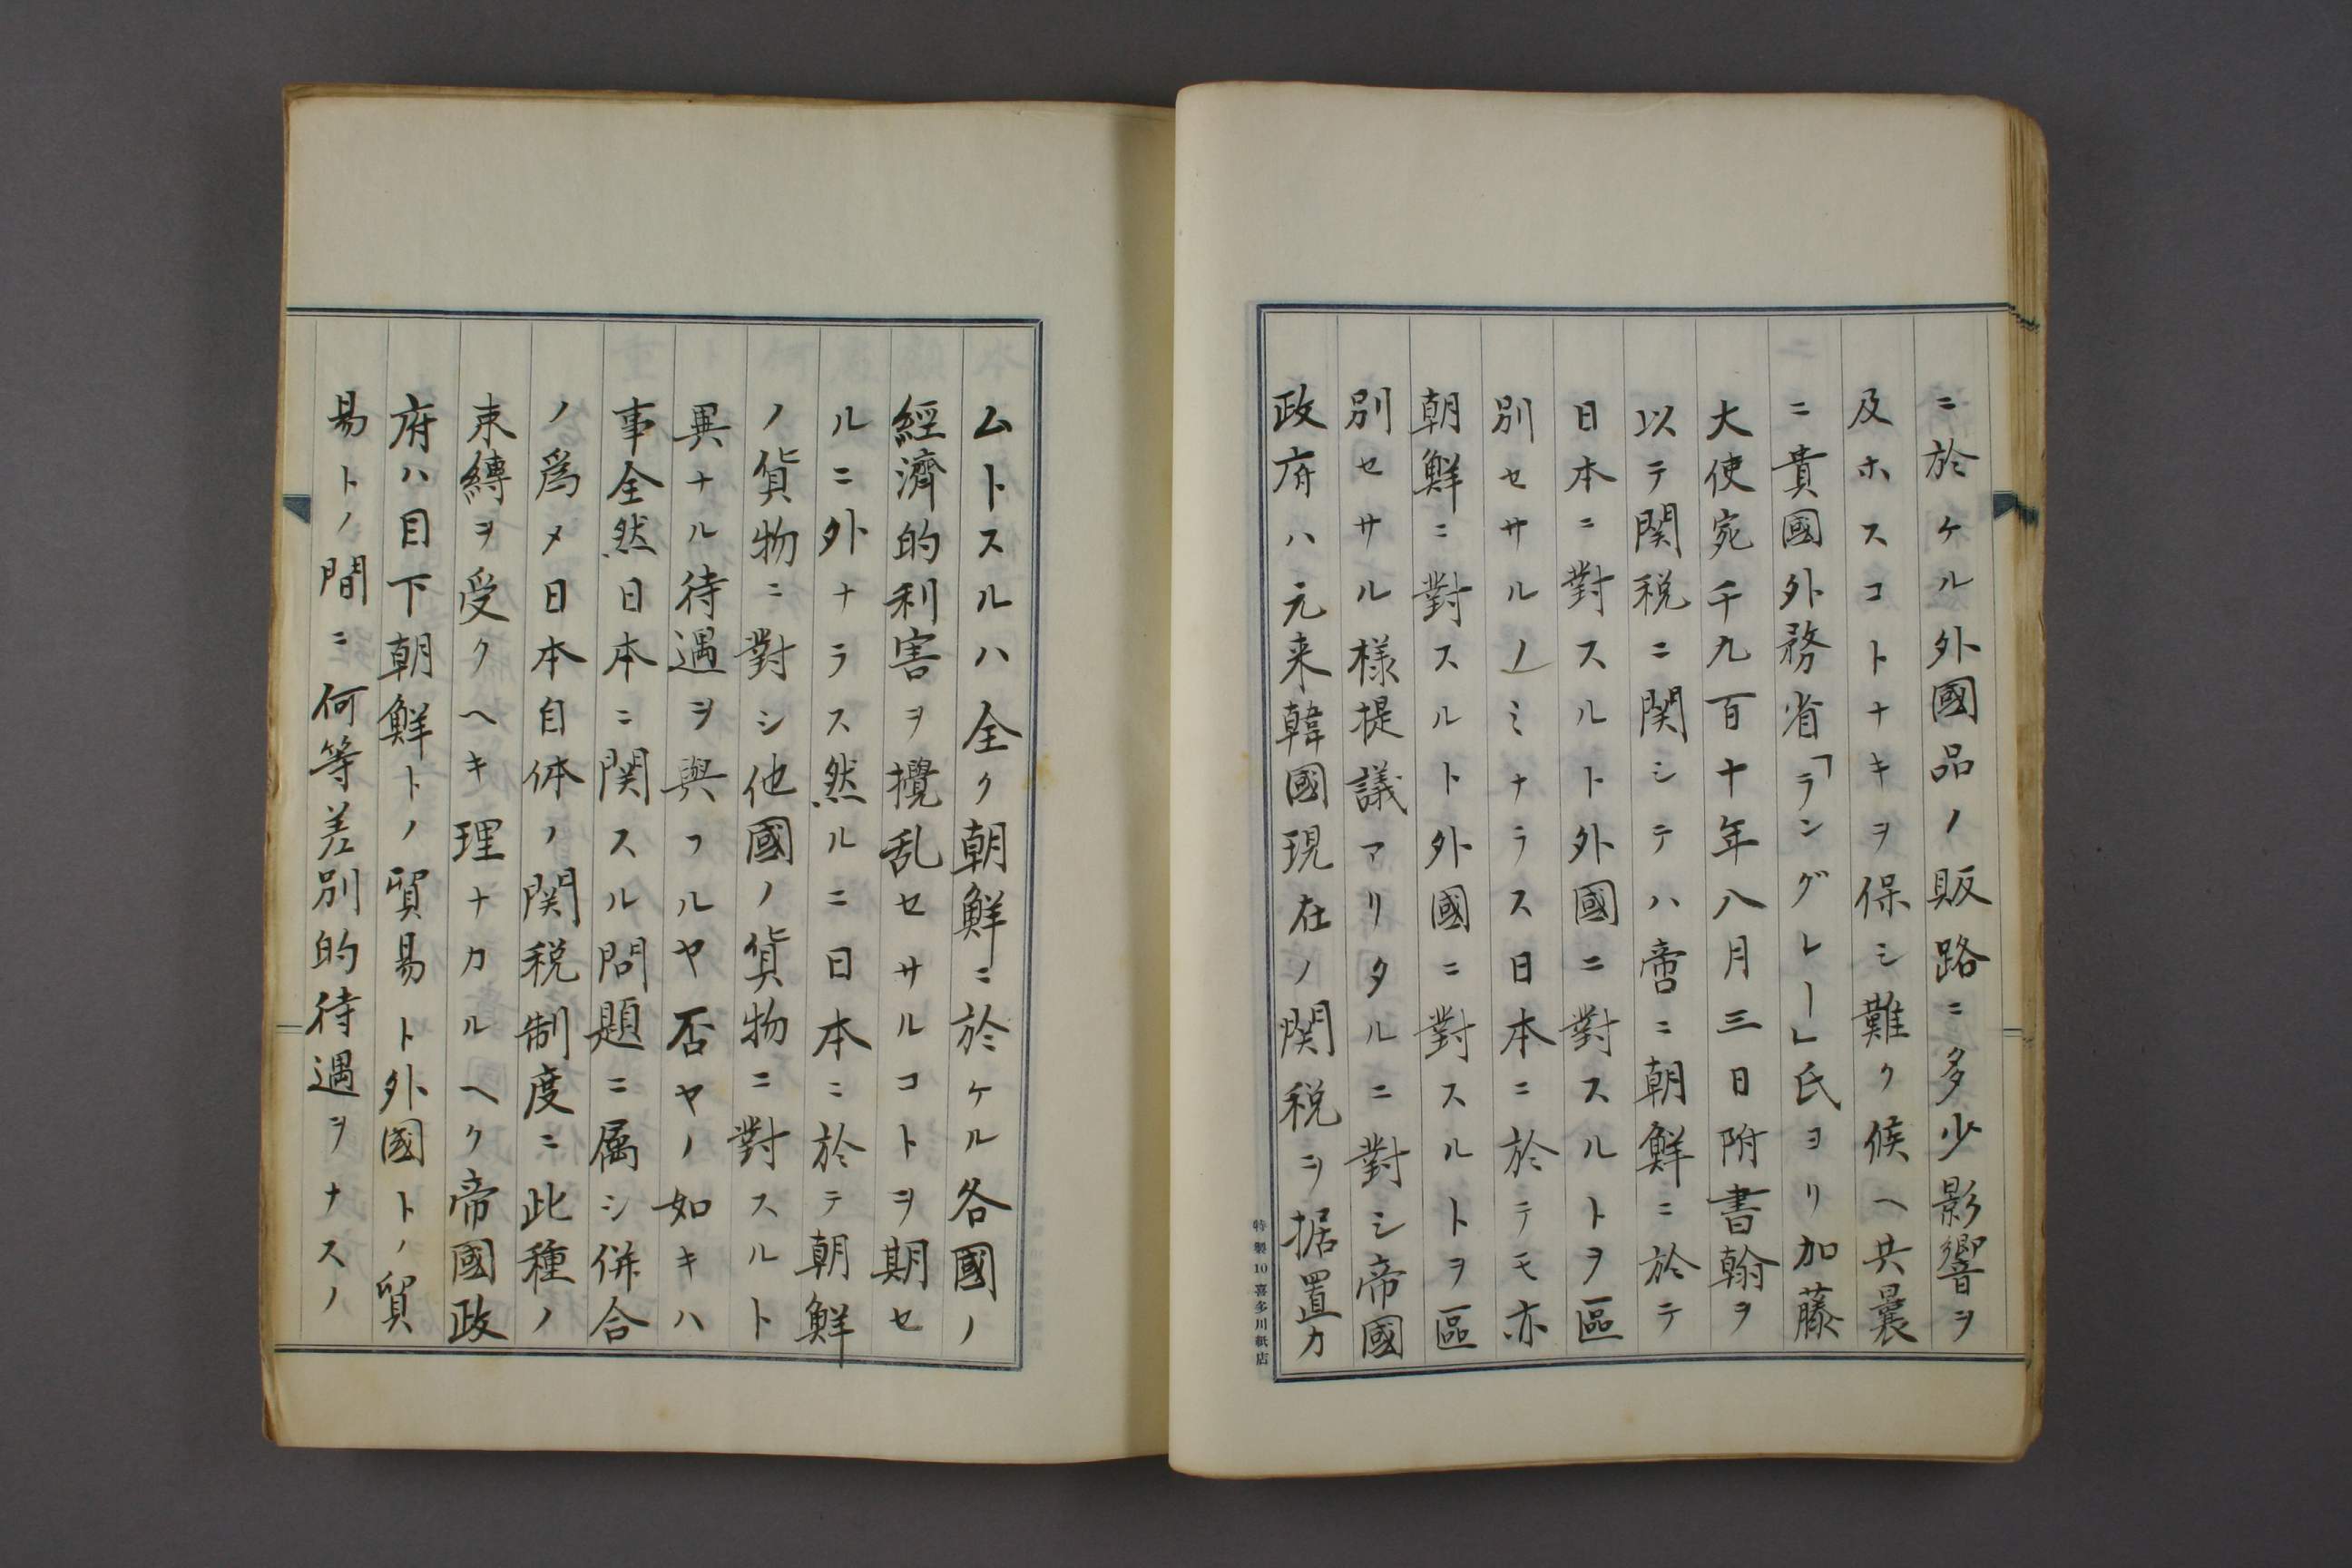 ニ於ケル外國品ノ販路ニ多少影響ヲ
及ホスコトナキヲ保シ難ク候ヘ共曩
ニ貴國外務省「ラングレー」氏ヨリ加藤
大使宛千九百十年八月三日附書翰ヲ
以テ関税ニ関シテハ啻ニ朝鮮ニ於テ
日本ニ對スルト外國ニ對スルトヲ區
別セサルノミナラス日本ニ於テモ亦
朝鮮ニ對スルト外國ニ對スルトヲ區
別セサル様提議アリタルニ對シ帝國
政府ハ元来韓國現在ノ関税ヲ据置カ
特製10喜多川紙店
ムトスルハ全ク朝鮮ニ於ケル各國ノ
經濟的利害ヲ攪乱セサルコトヲ期セ
ルニ外ナラス然ルニ日本ニ於テ朝鮮
ノ貨物ニ對シ他國ノ貨物ニ對スルト
異ナル待遇ヲ與フルヤ否ヤノ如キハ
事全然日本ニ関スル問題ニ属シ併合
ノ爲メ日本自体ノ関税制度ニ此種ノ
束縛ヲ受クヘキ理ナカルヘク帝國政
府ハ目下朝鮮トノ貿易ト外國トノ貿
易トノ間ニ何等差別的待遇ヲナスノ